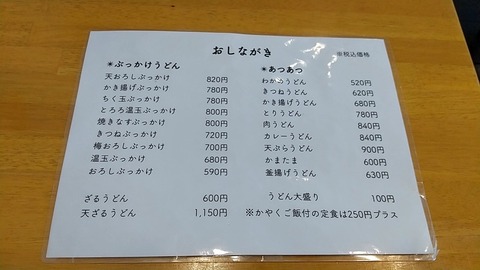 おしながき
※税込価格
＊ぶっかけうどん
天おろしぶっかけ 820円
かき揚げぶっかけ 780円
ちく玉ぶっかけ 780円
とろろ温玉ぶっかけ 800円
焼きなすぶっかけ 800円
きつねぶっかけ 720円
梅おろしぶっかけ 700円
温玉ぶっかけ 680円
おろしぶっかけ 590円
ざるうどん 600円
天ざるうどん 1,150円
＊あつあつ
わかめうどん 520円
きつねうどん 620円
かき揚げうどん 680円
とりうどん 780円
肉うどん 840円
カレーうどん 840円
天ぷらうどん 900円
かまたま 600円
釜揚げうどん 630円
うどん大盛り 100円
※かやくご飯付の定食は250円プラス